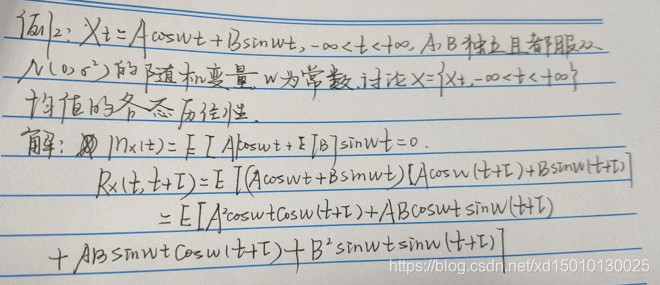 例2: Xt = Acoswt + Bsinwt, -∞<t<+∞, A,B独立且都服从
N(0,σ²)的随机变量,w为常数,讨论X={Xt,-∞<t<+∞}
均值的各态历经性.
解: mx(t) = E[A]coswt + E[B]sinwt = 0.
Rx(t,t+τ) = E[(Acoswt+Bsinwt)[Acosw(t+τ)+Bsinw(t+τ)]
= E[A²coswtcosw(t+τ)+ABcoswtsinw(t+τ)
+ ABsinwtcosw(t+τ)+B²sinwtsinw(t+τ)]
https://blog.csdn.net/xd15010130025